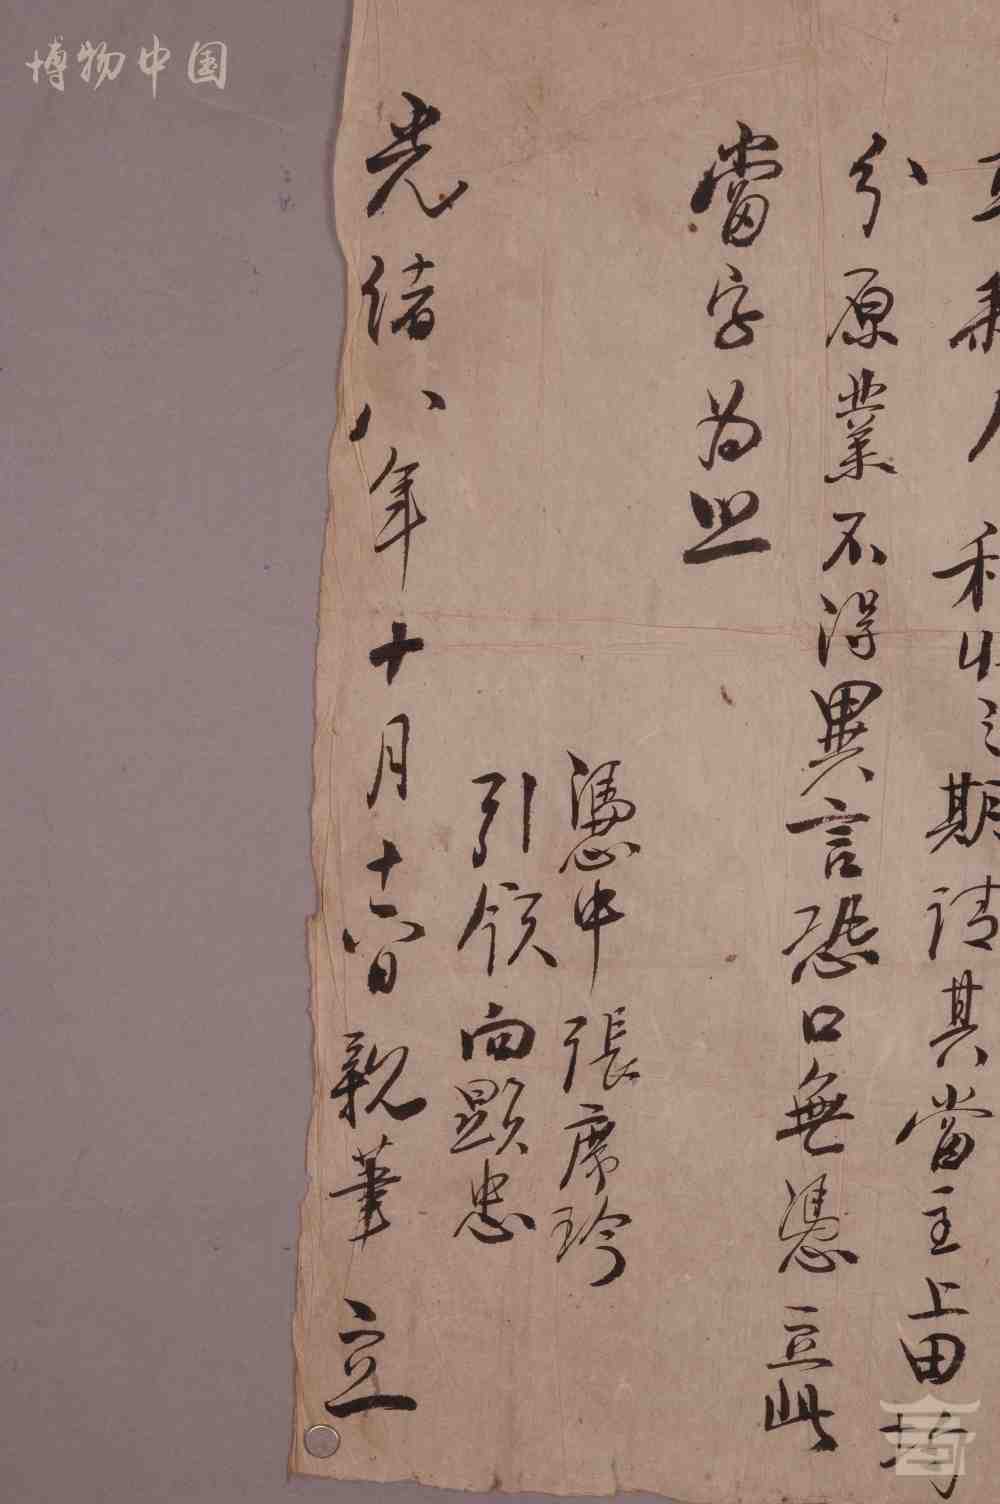 博物中国
秋收之期請其當主上田均
分原業不得異言恐口無憑立此
當字為㨿
憑中張席珍
引領向顯忠
光緒八年十月十六日親筆立